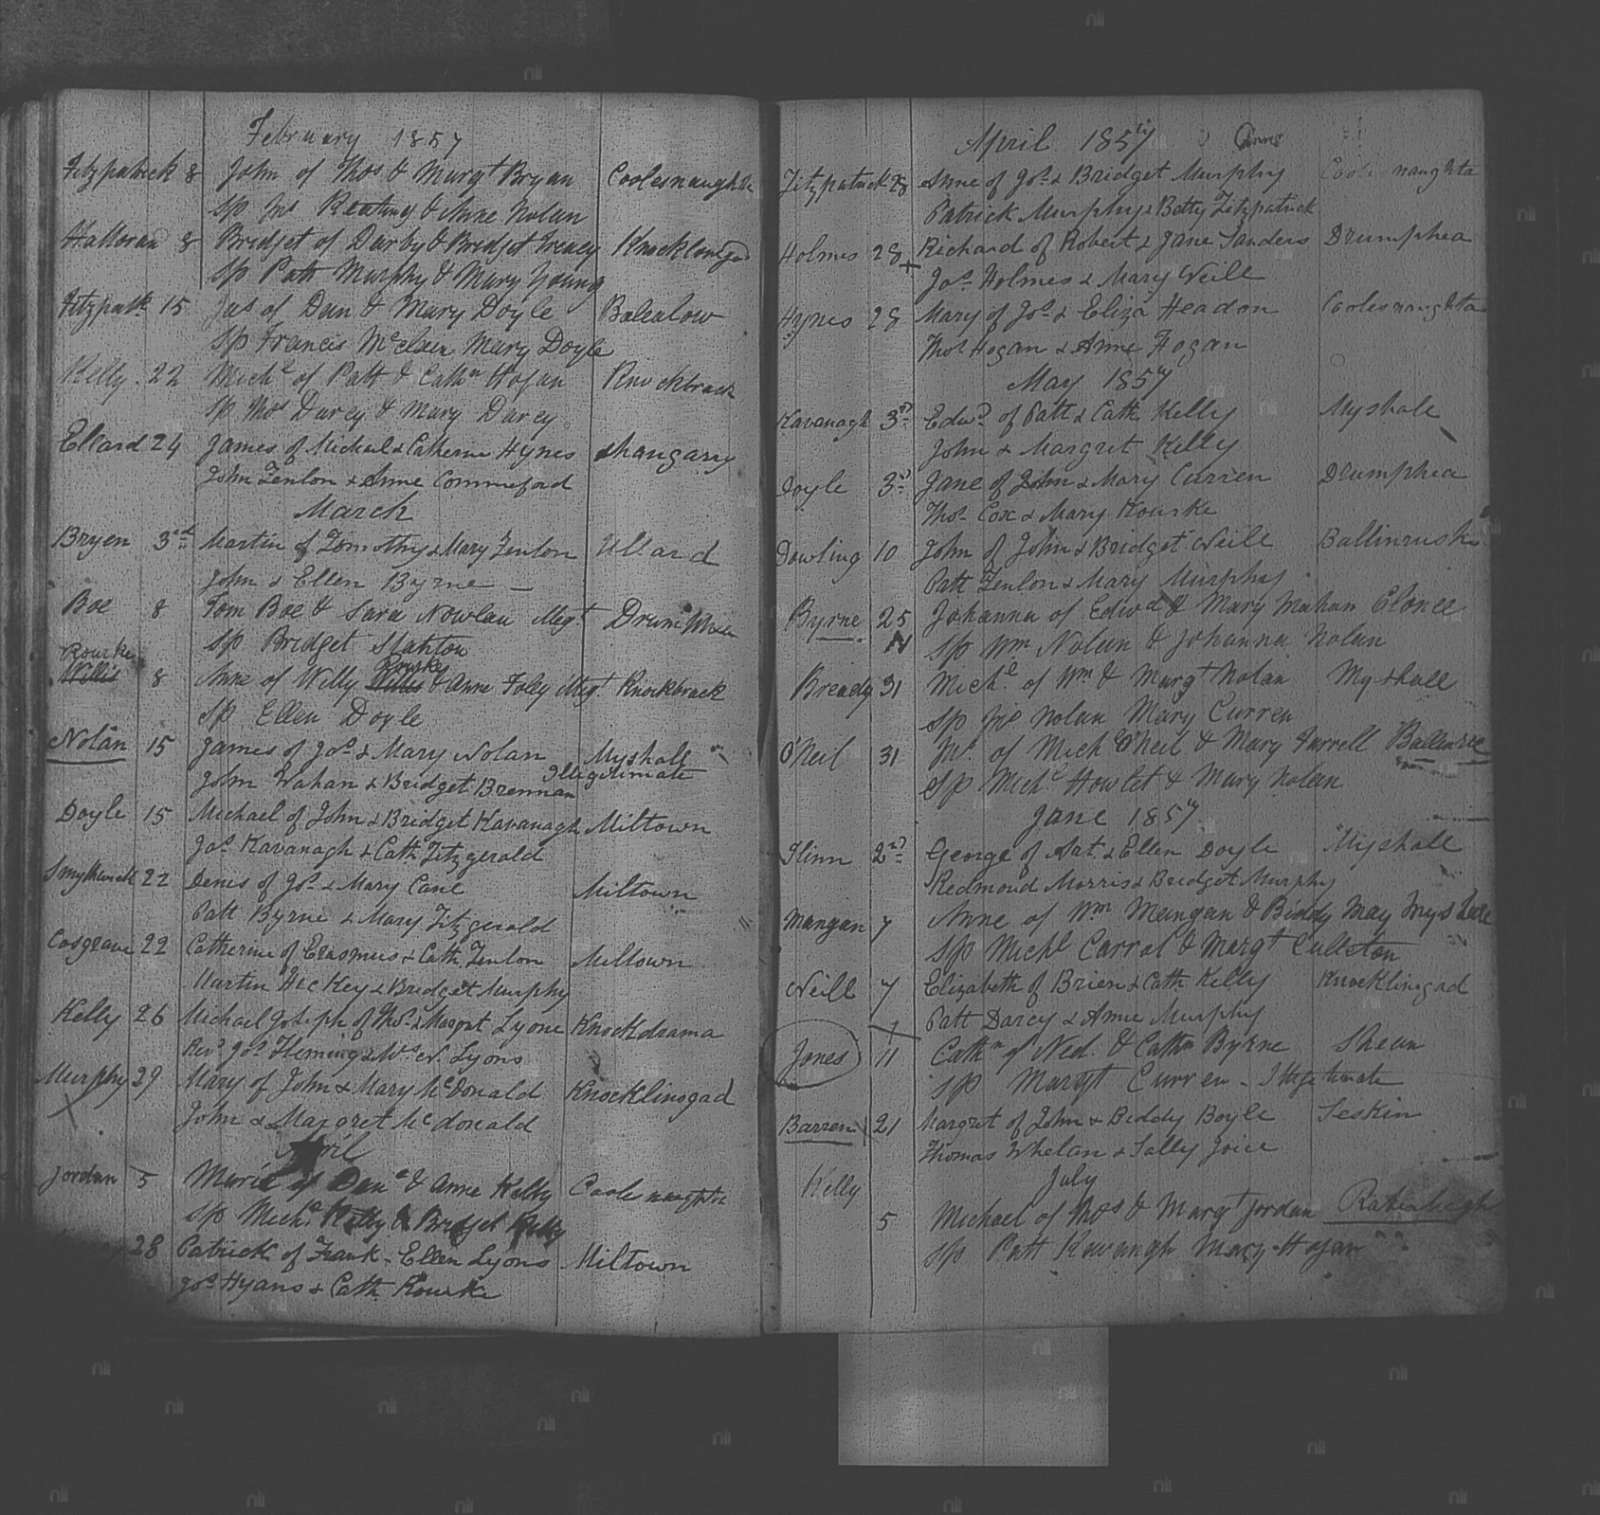 February 1857
Fitzpatrick 8 John of Thos & Margt Bryan Coolesnaughta
Sp Jns Keatiney & Anne Nolan
Halloran 8 Bridget of Darby & Bridget Treacy
Sp Patt Murphy & Mary Young
Fitzpatk 15 Jas of Dan & Mary Doyle Balealow
Sp Francis Mary Doyle
Kelly 22 Michl of Patt & Cathn Hogan Knockbrack
Sp Thos Darcy & Mary Darcy
Ellard 24 James of Michael & Catherine Hynes Shangarry
John Fenlon & Anne Commeford
March
Bryen 3rd Martin of Tomothy & Mary Fenlon Ullard
John & Ellen Byrne
Boe 8 Tom Boe & Sara Nowlan Mgt Drumphea
Sp Bridget Stahton
Rourke
Willis 8 Anne of Willy Willis Rourke & Anne Foley Mgt Knockbrack
Sp Ellen Doyle
Nolan 15 James of Jos & Mary Nolan Myshall
John Wahan & Bridget Brennan Illegitimate
Doyle 15 Michael of John & Bridget Kavanagh Miltown
Jos Kavanagh & Cath Fitzgerald
Smythwick 22 Denis of Jos & Mary Cane Miltown
Patt Byrne & Mary Fitzgerald
Cosgrave 22 Catherine of Erasmus & Cath Fenlon Miltown
Martin Hickey & Bridget Murphy
Kelly 26 Michael Joseph of Thos & Margrat Lyons Knockdrama
Revd Jos Fleming & Ms N. Lyons
Murphy 29 Mary of John & Mary McDonald Knocklinogad
John & Margret McDonald
April
Jordan 5 Marie of Danl & Anne Kelly Coolesnaughta
Sp Michl Kelly & Bridget Kelly
28 Patrick of Frank - Ellen Lyons Miltown
Jos Hyans & Cath Rourke
April 1857 Anne
Fitzpatrick 28 Anne of Jos & Bridget Murphy Coolesnaughta
Patrick Murphy & Betty Fitzpatrick
Holmes 28 Richard of Robert & Jane Sanders Drumphea
Jos Holmes & Mary Neill
Hynes 28 Mary of Jos & Eliza Headon Coolesnaughta
Thos Hogan & Anne Hogan
May 1857
Kavanagh 3rd Edwd of Patt & Cath Kelly Myshale
John & Margret Kelly
Doyle 3rd Jane of John & Mary Curren Drumphea
Thos Cox & Mary Rourke
Dowling 10 John of John & Bridget Neill
Patt Fenlon & Mary Murphy
Byrne 25 Johanna of Edwd & Mary Mahan Clonee
N Sp Wm Nolan & Johanna Nolan
Bready 31 Michl of Wm & Margt Nolan Myshall
Sp Jno Nolan Mary Curren
O'Neil 31 Jno. of Michl O'Neil & Mary Farrell
Sp Michl Howlet & Mary Nolan
June 1857
Flinn 2nd George of Nat & Ellen Doyle Myshall
Redmond Morris & Bridget Murphy
Mangan 7 Anne of Wm Mangan & Biddy May Myshall
Sp Michl Carrol & Margt Culleton
Neill 7 Elizabeth of Brien & Cath Kelly Knocklinogad
Patt Darcy & Anne Murphy
Jones 11 Cathn of Ned. & Cathn Byrne Shean
Sp Margt Curren - Illegitimate
Barren 21 Margret of John & Biddy Boyle Seskin
Thomas Whelan & Sally Joice
July
Kelly
5 Michael of Thos & Margt Jordan
Sp Patt Kavangh Mary Hogan